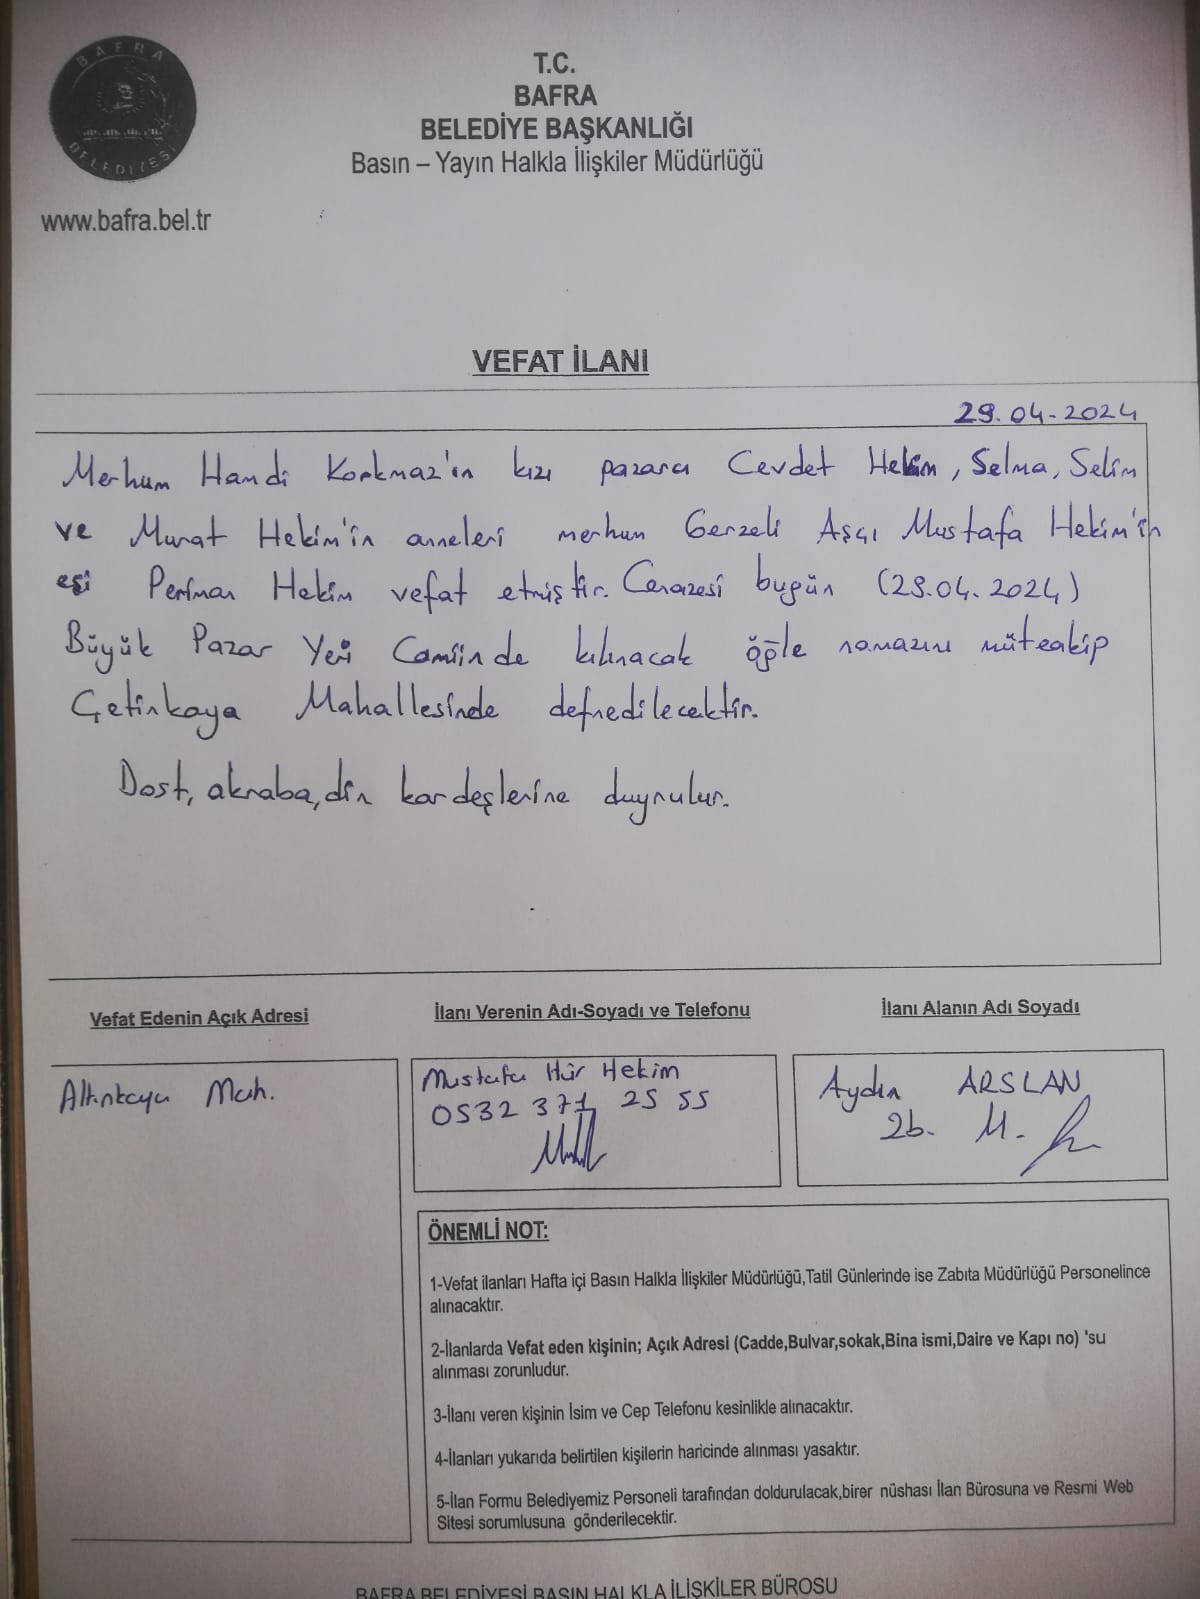 BAFRA
BELEDİYESİ
www.bafra.bel.tr
T.C.
BAFRA
BELEDİYE BAŞKANLIĞI
Basın – Yayın Halkla İlişkiler Müdürlüğü
VEFAT İLANI
29.04-2024
Merhum Hamdi Korkmaz'ın kızı pazarcı Cevdet Hekim, Selma, Selim
ve Murat Hekim'in anneleri merhum Gerzeli Aşçı Mustafa Hekim'in
eşi Perihan Hekim vefat etmiştir. Cenazesi bugün (29.04.2024)
Büyük Pazar Yeri Camiinde kılınacak öğle namazını müteakip
Çetinkaya Mahallesinde defnedilecektir.
Dost, akraba, din kardeşlerine duyrulur.
Vefat Edenin Açık Adresi
Altınkaya Mah.
İlanı Verenin Adı-Soyadı ve Telefonu
Mustafa Hür Hekim
0532 371 25 55
İlanı Alanın Adı Soyadı
Aydın ARSLAN
Zb. M.
ÖNEMLİ NOT:
1-Vefat ilanları Hafta içi Basın Halkla İlişkiler Müdürlüğü,Tatil Günlerinde ise Zabıta Müdürlüğü Personelince
alınacaktır.
2-İlanlarda Vefat eden kişinin; Açık Adresi (Cadde,Bulvar,sokak,Bina ismi,Daire ve Kapı no) 'su
alınması zorunludur.
3-İlanı veren kişinin İsim ve Cep Telefonu kesinlikle alınacaktır.
4-İlanları yukarıda belirtilen kişilerin haricinde alınması yasaktır.
5-İlan Formu Belediyemiz Personeli tarafından doldurulacak,birer nüshası İlan Bürosuna ve Resmi Web
Sitesi sorumlusuna gönderilecektir.
BAFRA BELEDİYESİ BASIN HALKLA İLİŞKİLER BÜROSU